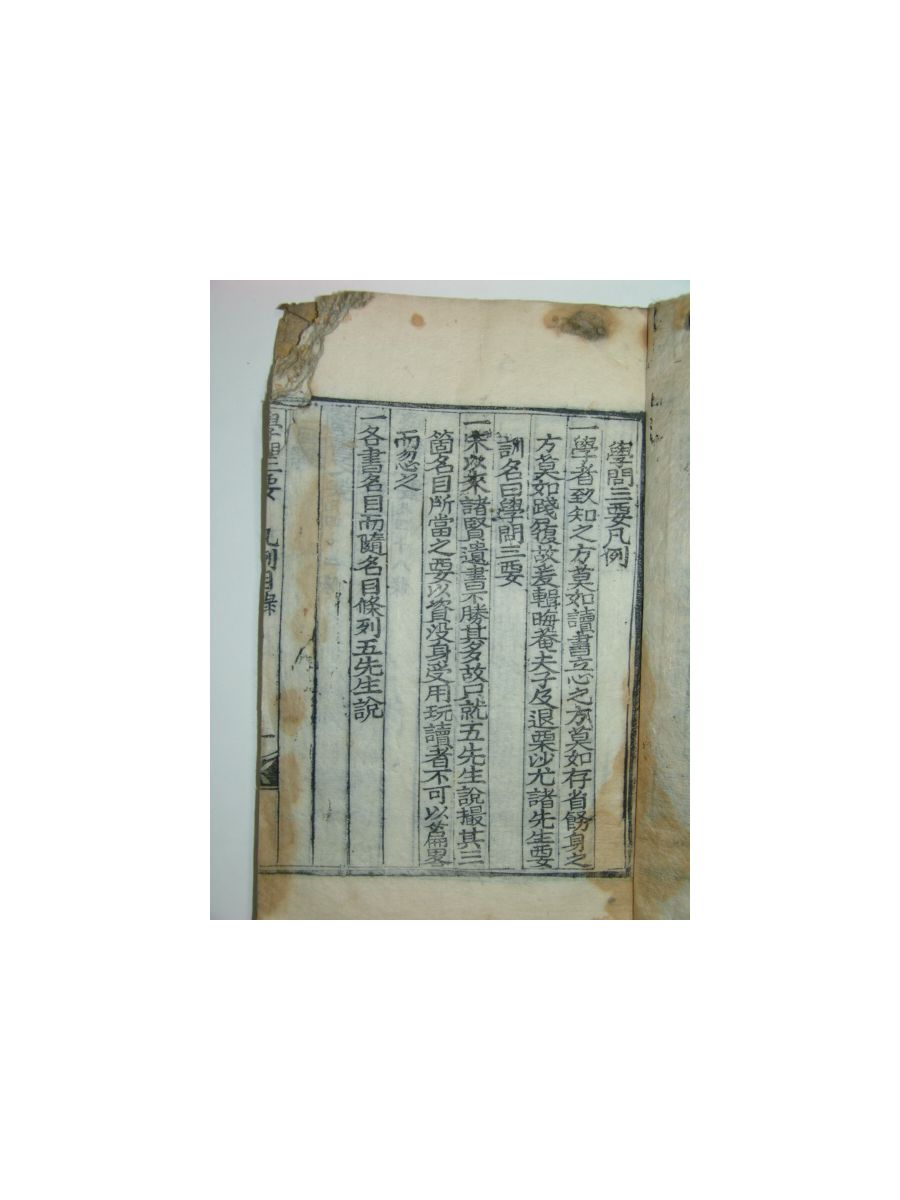 學問三要凡例
一學者致知之方莫如讀書立心之方莫如存省飭身之
方莫如踐履故爰輯晦菴夫子及退栗沙尤諸先生要
訓名曰學問三要
一宋以來諸賢遺書不勝其多故只就五先生說撮其三
箇名目所當之要以資沒身受用玩讀者不可以萹畧
而忽之
一各書名目而隨名目條列五先生說
學問三要 凡例目錄 一